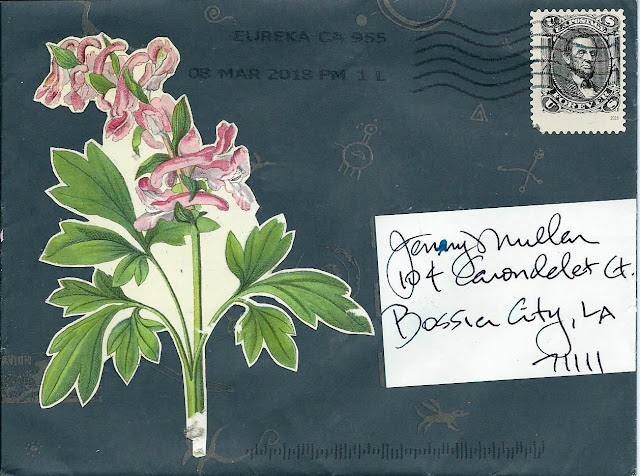 EUREKA CA 955
08 MAR 2018 PM 1 L
U.S. POSTAGE
FOREVER
U S
Jenny Mullen
104 Carondelet Ct.
Bossier City, LA
71111